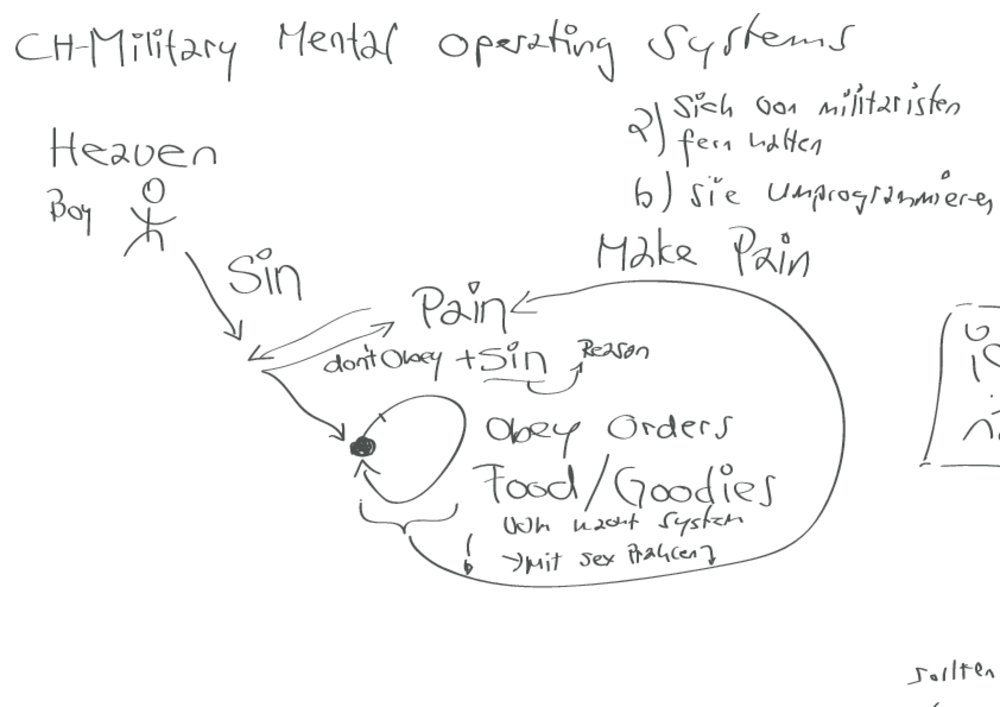 CH-Military Mental operating Systems
a) Sich von militaristen
fern halten
b) sie umprogrammieren
Heaven
Boy
Sin
Make Pain
Pain
don't Obey + Sin
Reason
Obey Orders
Food/Goodies
von system
! → Mit sex
sollten